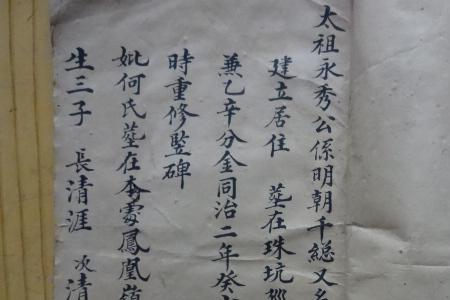 太祖永秀公係明朝千總又名
建立居住 塟在珠坑
兼乙辛分金同治二年癸
時重修竪碑
妣何氏塟在本處鳳凰嶺
生三子 長清涯 次清